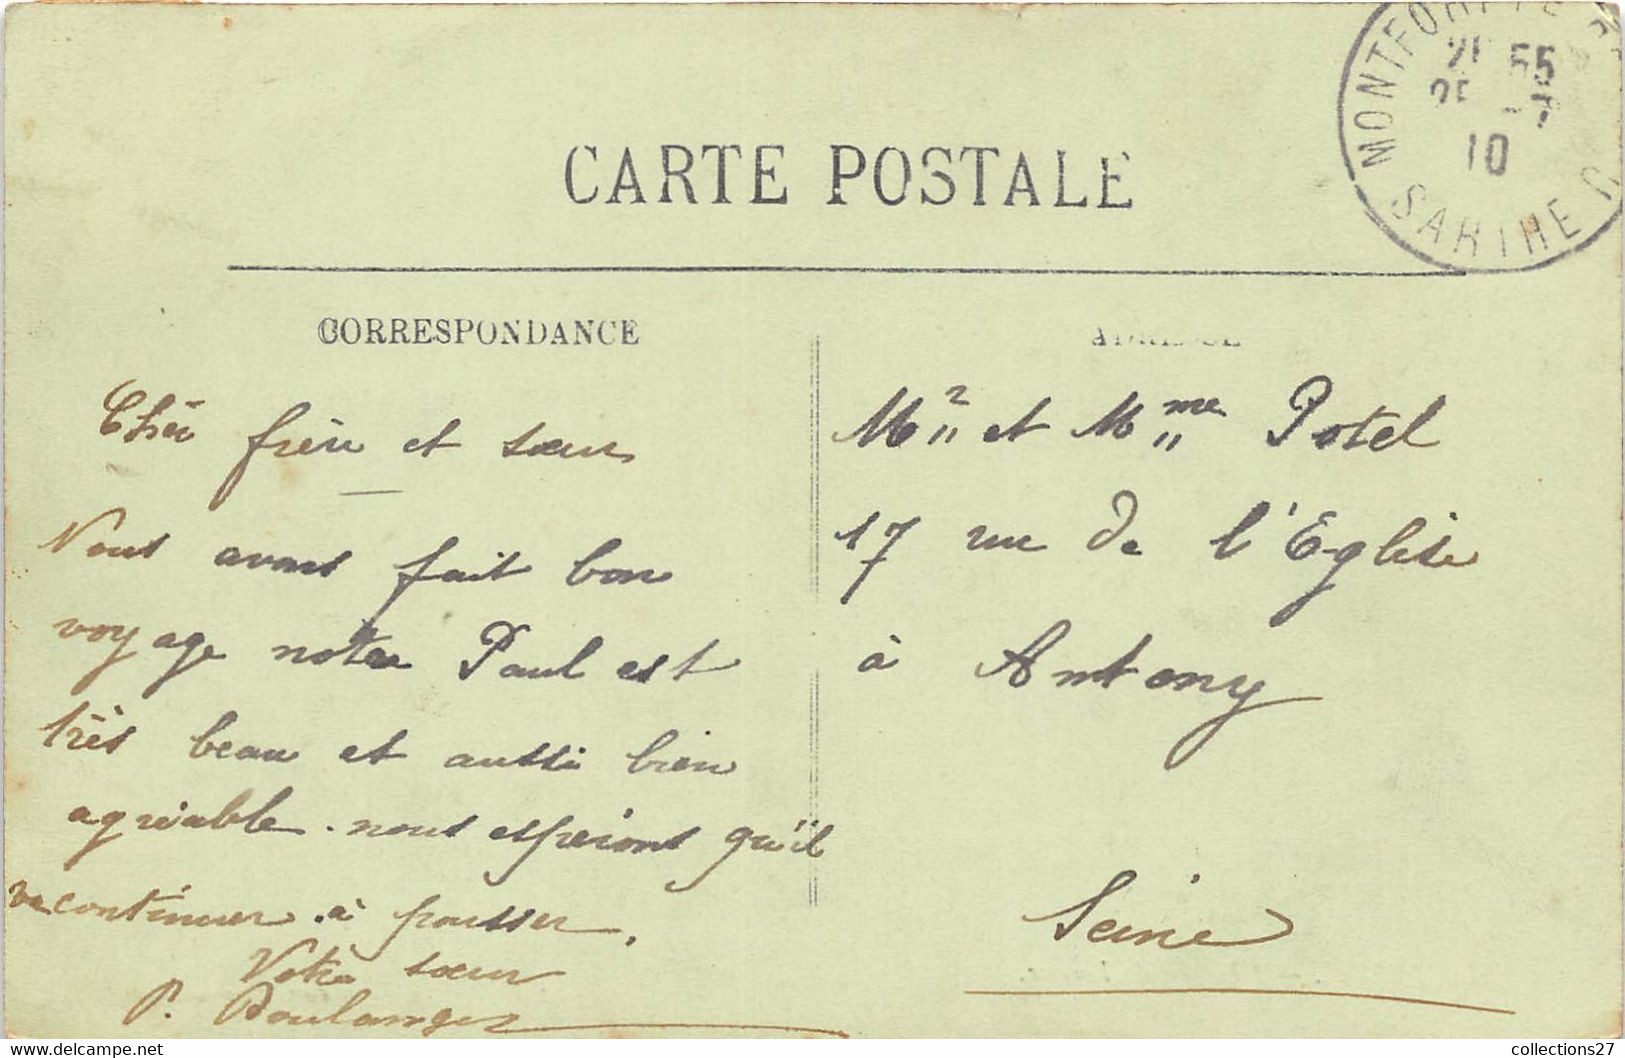 CARTE POSTALE
MONTFORT
21 55
25 -7
10
SARTHE
CORRESPONDANCE
ADRESSE
Cher frère et sœur
Nous avons fait bon
voyage notre Paul est
très beau et aussi bien
agréable. nous espérons qu'il
va continuer à pousser.
Votre sœur
P. Boulanger
Mr et Mme Potel
17 rue de l'Eglise
à Antony
Seine
collections27